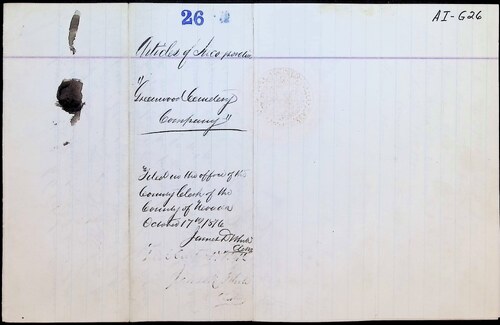 26
AI-G26
Articles of Incorporation
"Greenwood Cemetery
Company"
Filed in the office of the
County Clerk of the
County of Nevada
October 17th 1876
James D White
Clerk